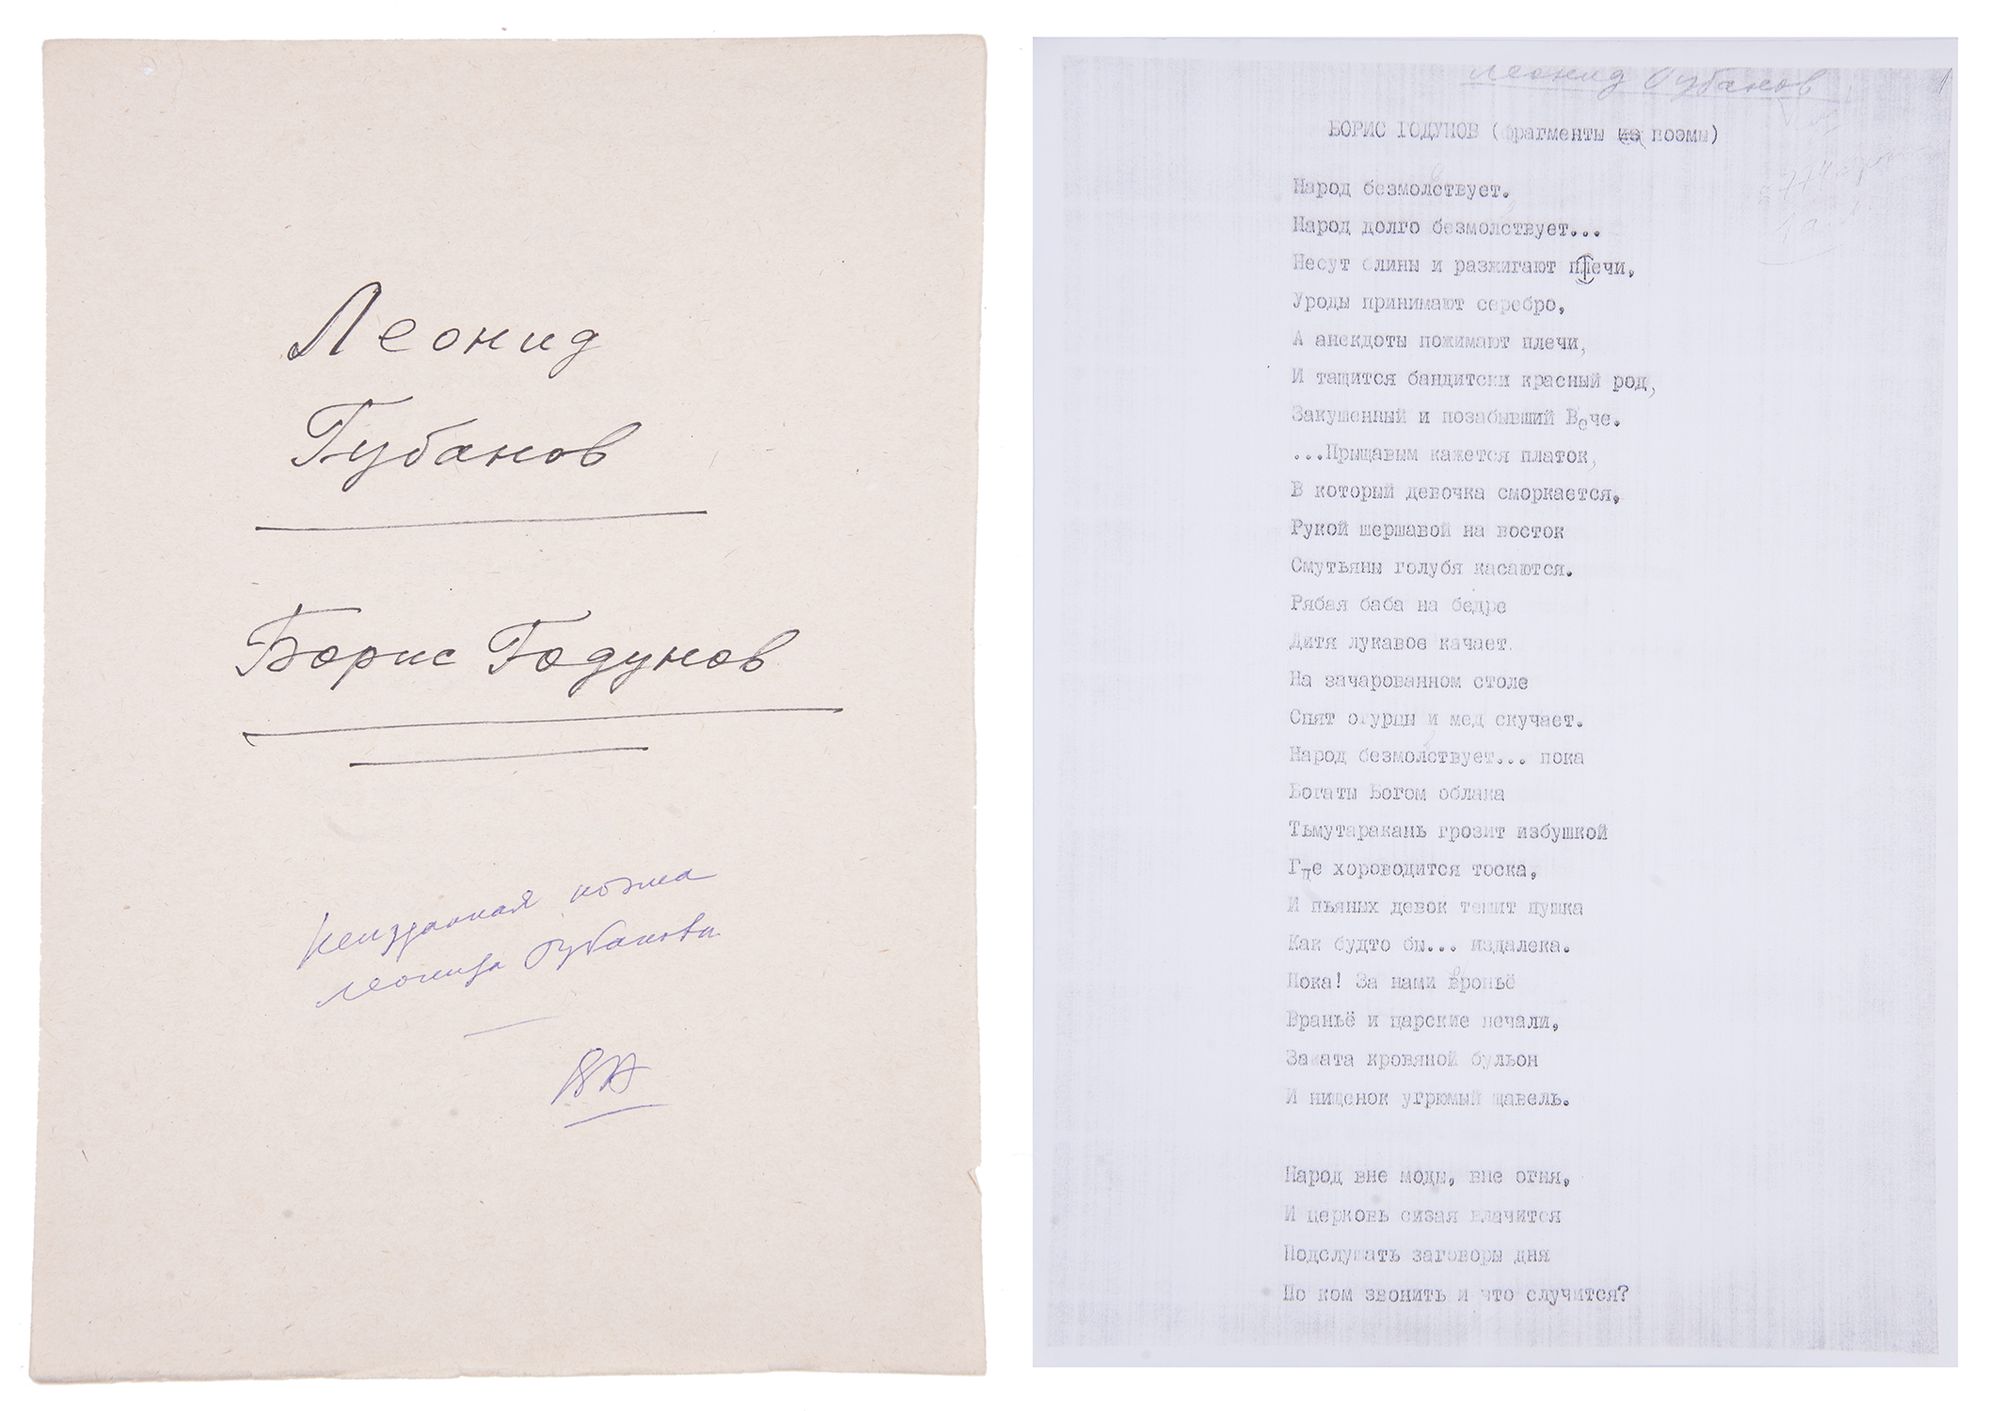 Леонид
Губанов
Борис Годунов
Неизданная поэма
Леонида Губанова
ВА
Леонид Губанов
БОРИС ГОДУНОВ (фрагменты из поэмы)
Народ безмолствует.
Народ долго безмолствует...
Несут блины и разжигают печи,
Уроды принимают серебро,
А анекдоты пожимают плечи,
И тащится бандитски красный род,
Закушенный и позабывший Вече.
...Прыщавым кажется платок,
В который девочка сморкается,
Рукой шершавой на восток
Смутьяны голубя касаются.
Рябая баба на бедре
Дитя лукавое качает.
На зачарованном столе
Спят огурцы и мед скучает.
Народ безмолствует... пока
Богаты Богом облака
Тьмутаракань грозит избушкой
Где хороводится тоска,
И пьяных девок тешит пушка
Как будто бы... издалека.
Пока! За нами вроньё
Враньё и царские печали,
Заката кровяной бульон
И нищенок угрюмый щавель.
Народ вне моды, вне огня,
И церковь сизая влачится
Подслушать заговоры дня
По ком звонить и что случится?